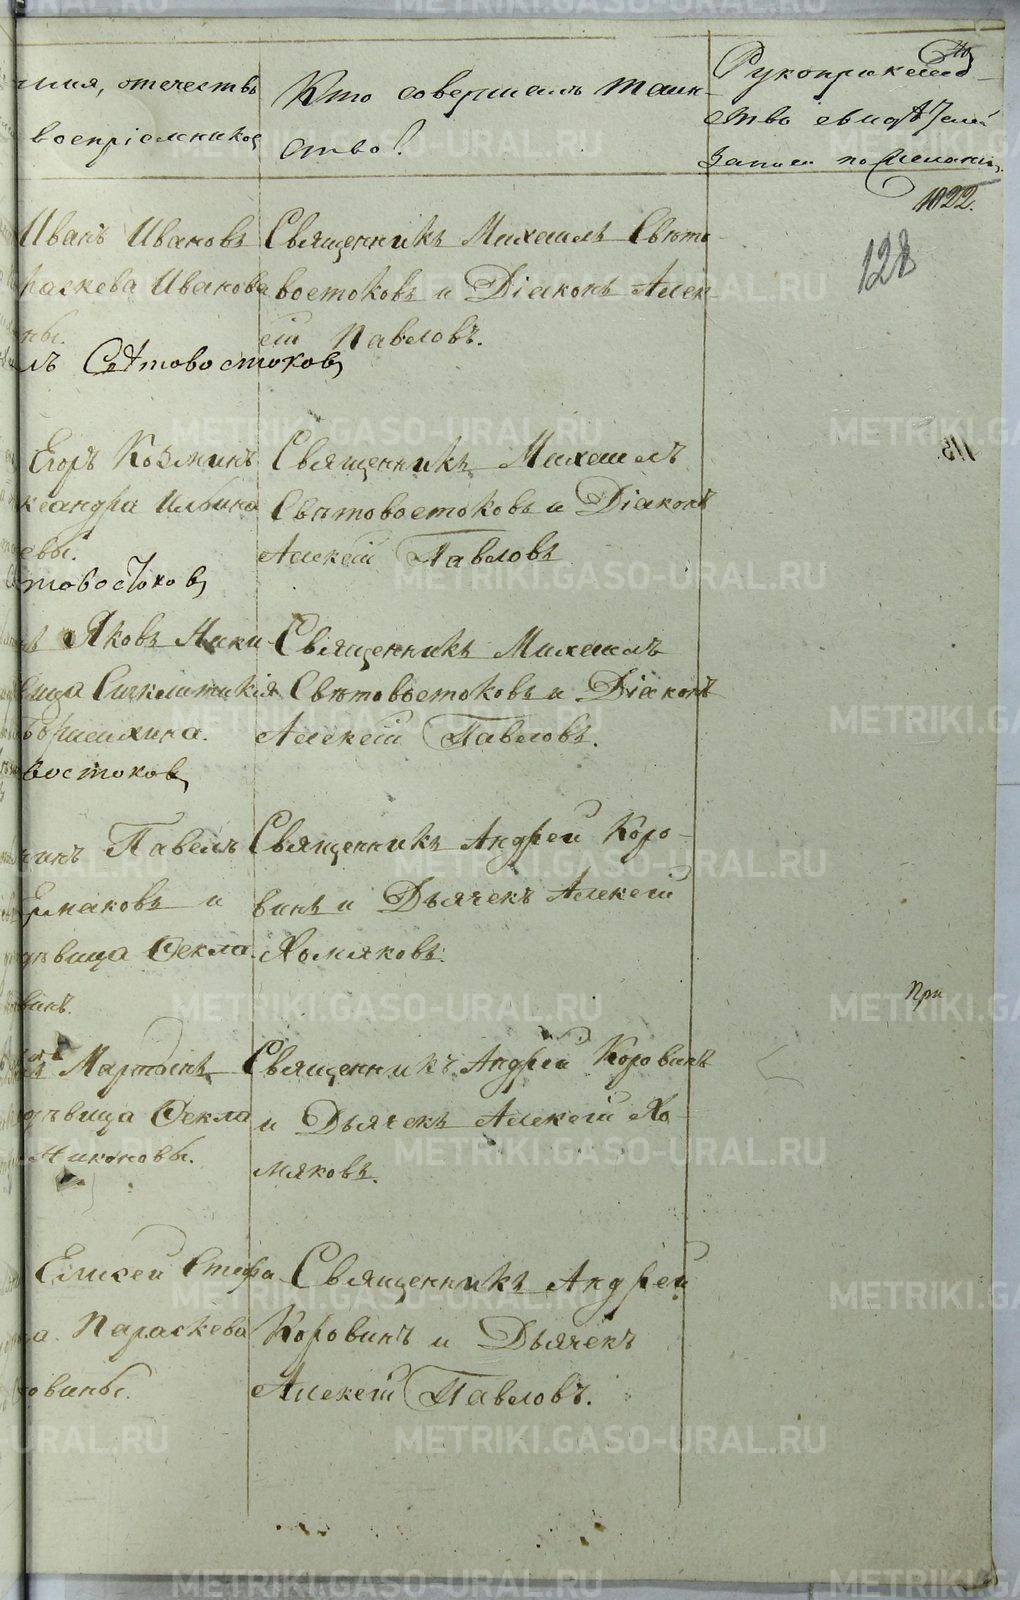 METRIKI.GASO-URAL.RU
имя, отечество
воспріемниковъ
Кто совершалъ таин-
ство?
Рукоприклад-
ство свидѣтелей
записи по желанію.
1022.
128
Иванъ Ивановъ
раскева Иванова
ны.
лъ Свѣтовостоковъ
Священникъ Михаилъ Свѣто-
востоковъ и Діаконъ Алек-
сій Павловъ.
Егоръ Козминъ
ксандра Ильина
евы.
товостоковъ
Священникъ Михаилъ
Свѣтовостоковъ и Діаконъ
Алексій Павловъ
113.
ъ Яковъ Ники-
вица Синклитикія
востоковъ
Священникъ Михаилъ
Свѣтовостоковъ и Діаконъ
Алексій Павловъ.
инъ Павелъ
Ермаковъ и
дѣвица Ѳекла
винъ.
Священникъ Андрей Коро-
винъ и Дьячекъ Алексій
Хомяковъ.
При
Мартынъ
дѣвица Ѳекла
Никоновы.
Священникъ Андрей Коровинъ
и Дьячекъ Алексій Хо-
мяковъ.
Елисей Стефа-
а. Параскева
овины.
Священникъ Андрей
Коровинъ и Дьячекъ
Алексій Павловъ.